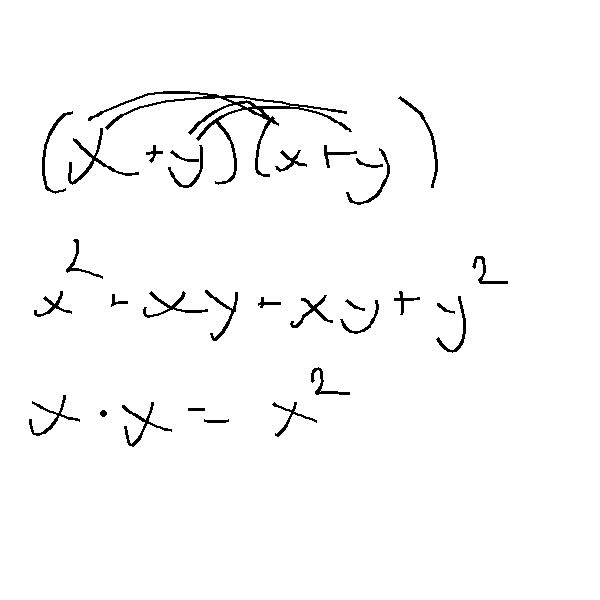 (x+y)(x+y)
x²+xy+xy+y²
x·x=x²